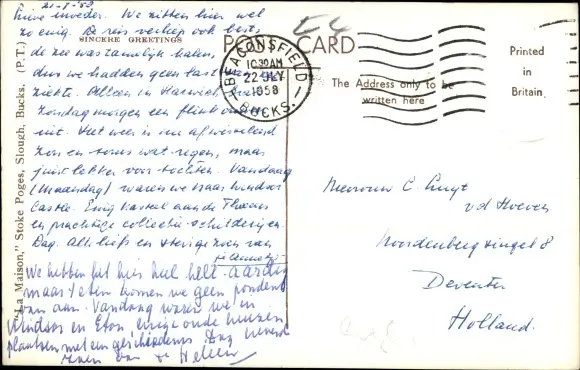 21-7-'58
Lieve moeder. We zitten hier wel
zo enig. De reis verliep ook best,
SINCERE GREETINGS
de zee was tamelijk kalm,
dus we hadden geen last
ziekte. Alleen in Harwich
Zondagmorgen een flink
uit. Het weer is nu afwisselend
zon en soms wat regen, maar
juist lekker voor tochten. Vandaag
(Maandag) waren we naar Windsor
Castle. Enig kasteel aan de Theems
en prachtige collectie schilderijen.
Dag. Alle liefs en stevige zoen van
je Annetje
We hebben het hier heel aardig
maar eten komen we geen ponden
van aan. Vandaag waren we in
Windsor en Eton enige oude huizen
plaatsen met een geschiedenis. Dag
zoen van Heleen
"La Maison," Stoke Poges, Slough, Bucks. (P.T.)
POST CARD
BEACONSFIELD
10.30AM
22 JLY
1958
BUCKS.
The Address only to be
written here
Printed
in
Britain
Mevrouw C Luyt
v.d Hoeven
Noordenbergsingel 8
Deventer
Holland.